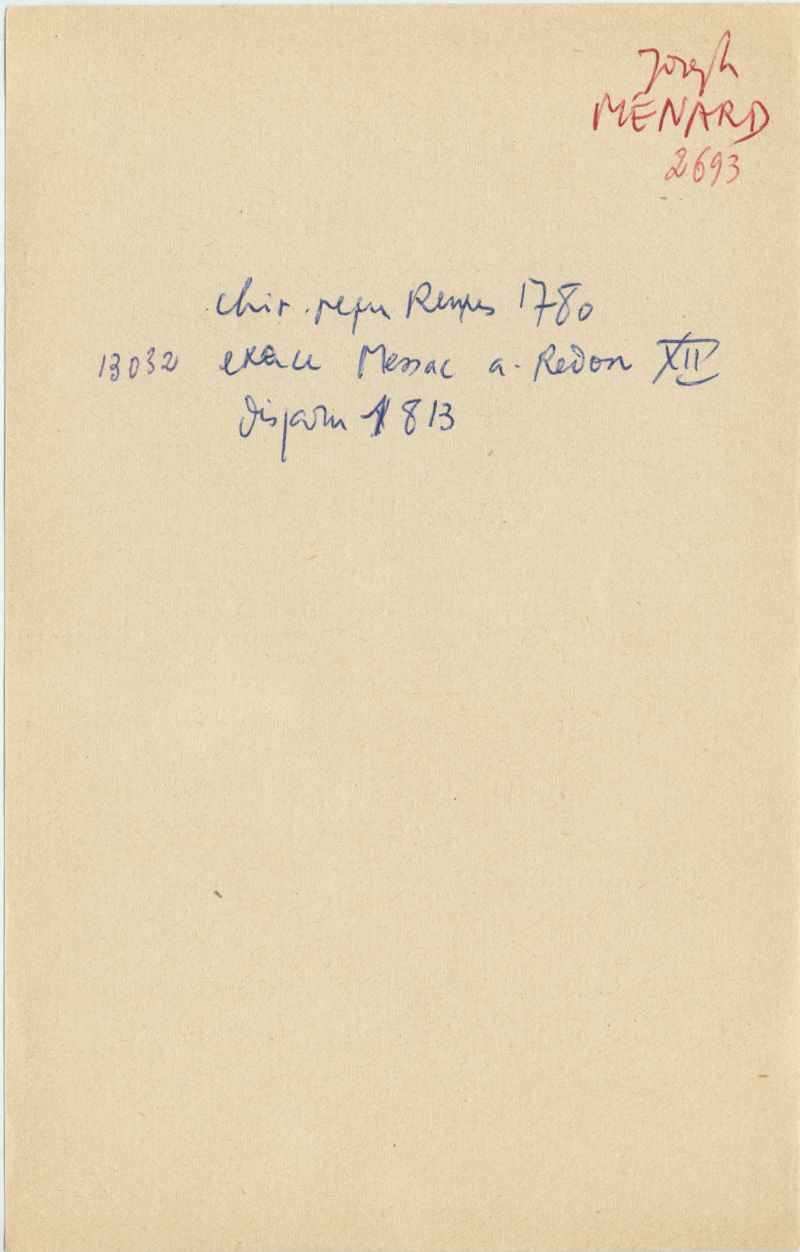 Joseph
MÉNARD
2693
chir. reçu Rennes 1780
13032 exerce Messac a. Redon XII
disparu 1813